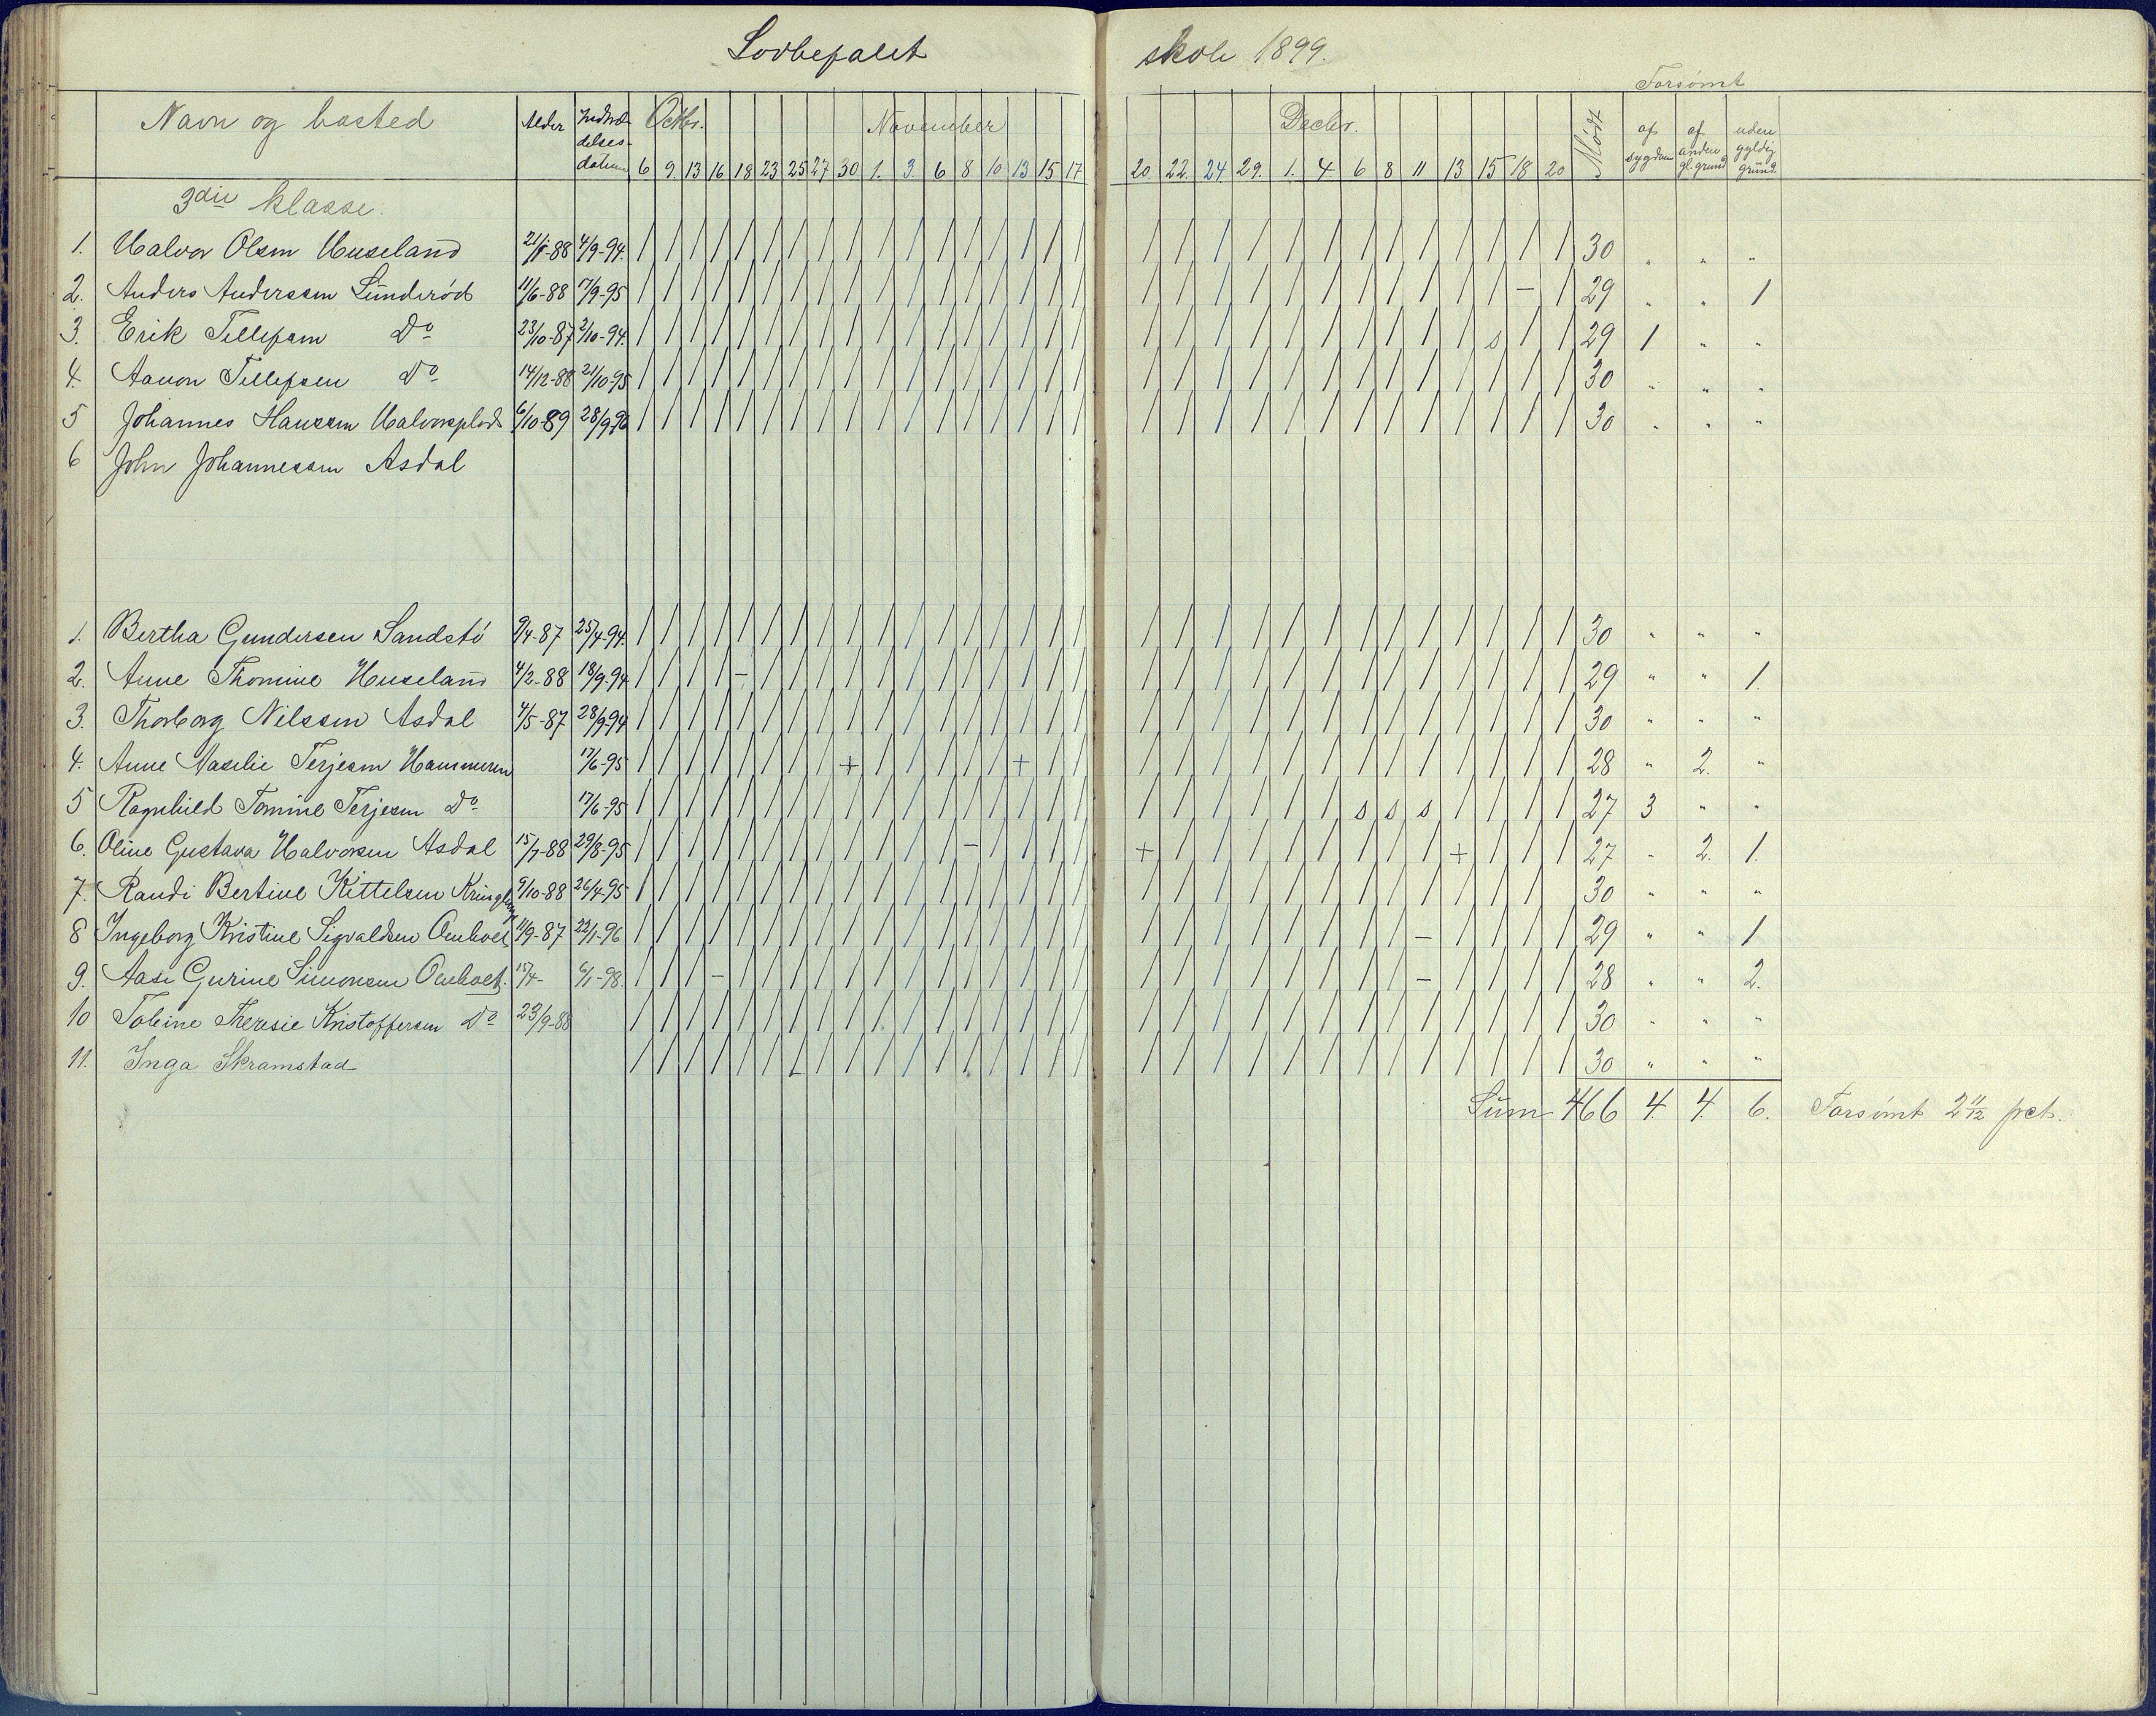 Lovbefalet skole 1899.
Forsömt
Navn og bosted Alder Indtrædelses-datum Octbr. November Decbr. Mödt af sygdom af anden gl. grund uden gyldig grund
6 9. 13 16 18 23 25 27 30 1. 3. 6 8 10 13 15 17 20. 22. 24. 29. 1. 4 6 8 11 13 15 18 20
3die klasse.
1. Halvor Olsen Huseland 21/8-88 4/9-94. / / / / / / / / / / / / / / / / / / / / / / / / / / / / / / 30 " " "
2. Anders Anderssen Sünderöd 11/6-88 17/9-95 / / / / / / / / / / / / / / / / / / / / / / / / / / / / — / 29 " " 1
3. Erik Tellefsen Do 23/10-87 2/10-94. / / / / / / / / / / / / / / / / / / / / / / / / / / / s / / 29 1 " "
4. Aanon Tellefsen Do 14/12-88 21/10-95 / / / / / / / / / / / / / / / / / / / / / / / / / / / / / / 30 " " "
5 Johannes Hanssen Halvorsplads 6/10-89 28/9-96 / / / / / / / / / / / / / / / / / / / / / / / / / / / / / / 30 " " "
6 John Johannessen Asdal
1. Bertha Gundersen Sandstö 9/4-87 25/4-94. / / / / / / / / / / / / / / / / / / / / / / / / / / / / / / 30 " " "
2. Anne Thomine Huseland 4/2-88 18/9-94 / / / / — / / / / / / / / / / / / / / / / / / / / / / / / / 29 " " 1.
3. Thorborg Nilssen Asdal 4/5-87 28/9-94 / / / / / / / / / / / / / / / / / / / / / / / / / / / / / / 30 " " "
4. Anne Aaselie Terjesen Hammeren 17/6-95 / / / / / / / / + / / / / / + / / / / / / / / / / / / / / / 28 " 2. "
5 Ragnhild Tomine Terjesen Do 17/6-95 / / / / / / / / / / / / / / / / / / / / / / / s s s / / / / 27 3 " "
6. Oline Gustava Halvorsen Asdal 15/7-88 29/8-95 / / / / / / / / / / / / — / / / / + / / / / / / / / + / / / 27 " 2. 1.
7. Randi Bertine Kittelsen 9/10-88 26/4-95 / / / / / / / / / / / / / / / / / / / / / / / / / / / / / / 30 " " "
8 Ingeborg Kristine Sigvaldsen Omholt 11/9-87 22/1-96 / / / / / / / / / / / / / / / / / / / / / / / / / — / / / / 29 " " 1
9. Aase Gurine Simonsen Omholt. 15/4- 6/1-98. / / / — / / / / / / / / / / / / / / / / / / / / / — / / / / 28 " " 2.
10 Tobine Theresie Kristoffersen Do 23/9-88 / / / / / / / / / / / / / / / / / / / / / / / / / / / / / / 30 " " "
11. Inga Skramstad / / / / / / / / / / / / / / / / / / / / / / / / / / / / / / 30 " " "
Süm 466 4. 4. 6. Forsömt 2 11/12 pct.